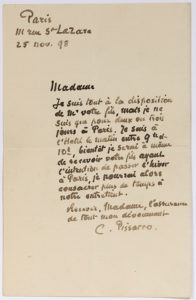 Paris
111 rue St Lazare
25 nov. 98
Madame
Je suis tout à la disposition
de Mr votre fils, mais je ne
suis que pour deux ou trois
jours à Paris. Je suis à
l'Hotel le matin entre 9 et
10h, bientôt je serai à même
de recevoir votre fils ayant
l'intention de passer l'hiver
à Paris, je pourrai alors
consacrer plus de temps à
notre entretien.
Recevez, Madame, l'assurance
de tout mon dévouement
C. Pissarro